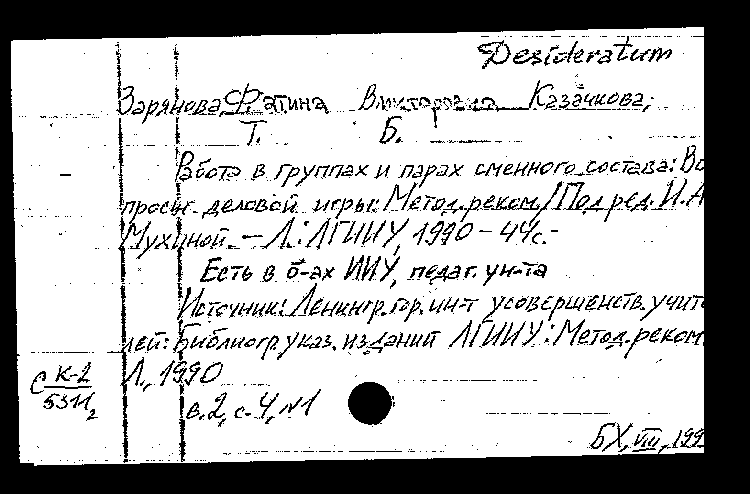 Desideratum
Зарянова, Фатина Викторовна Казачкова,
Т. Б.
Работа в группах и парах сменного состава: Во
просы деловой игры: Метод. реком. / Под ред. И.А
Мухиной. – Л.: ЛГИИУ, 1990 – 44с.-
Есть в б-ах ИИУ, педаг. ун-та
Источник: Ленингр. гор. ин-т усовершенств. учите
лей: Библиогр. указ. изданий ЛГИУУ: Метод. реком.
Л., 1990
С К-2
5311₂
в.2, с.4, №1
БХ, VIII, 199